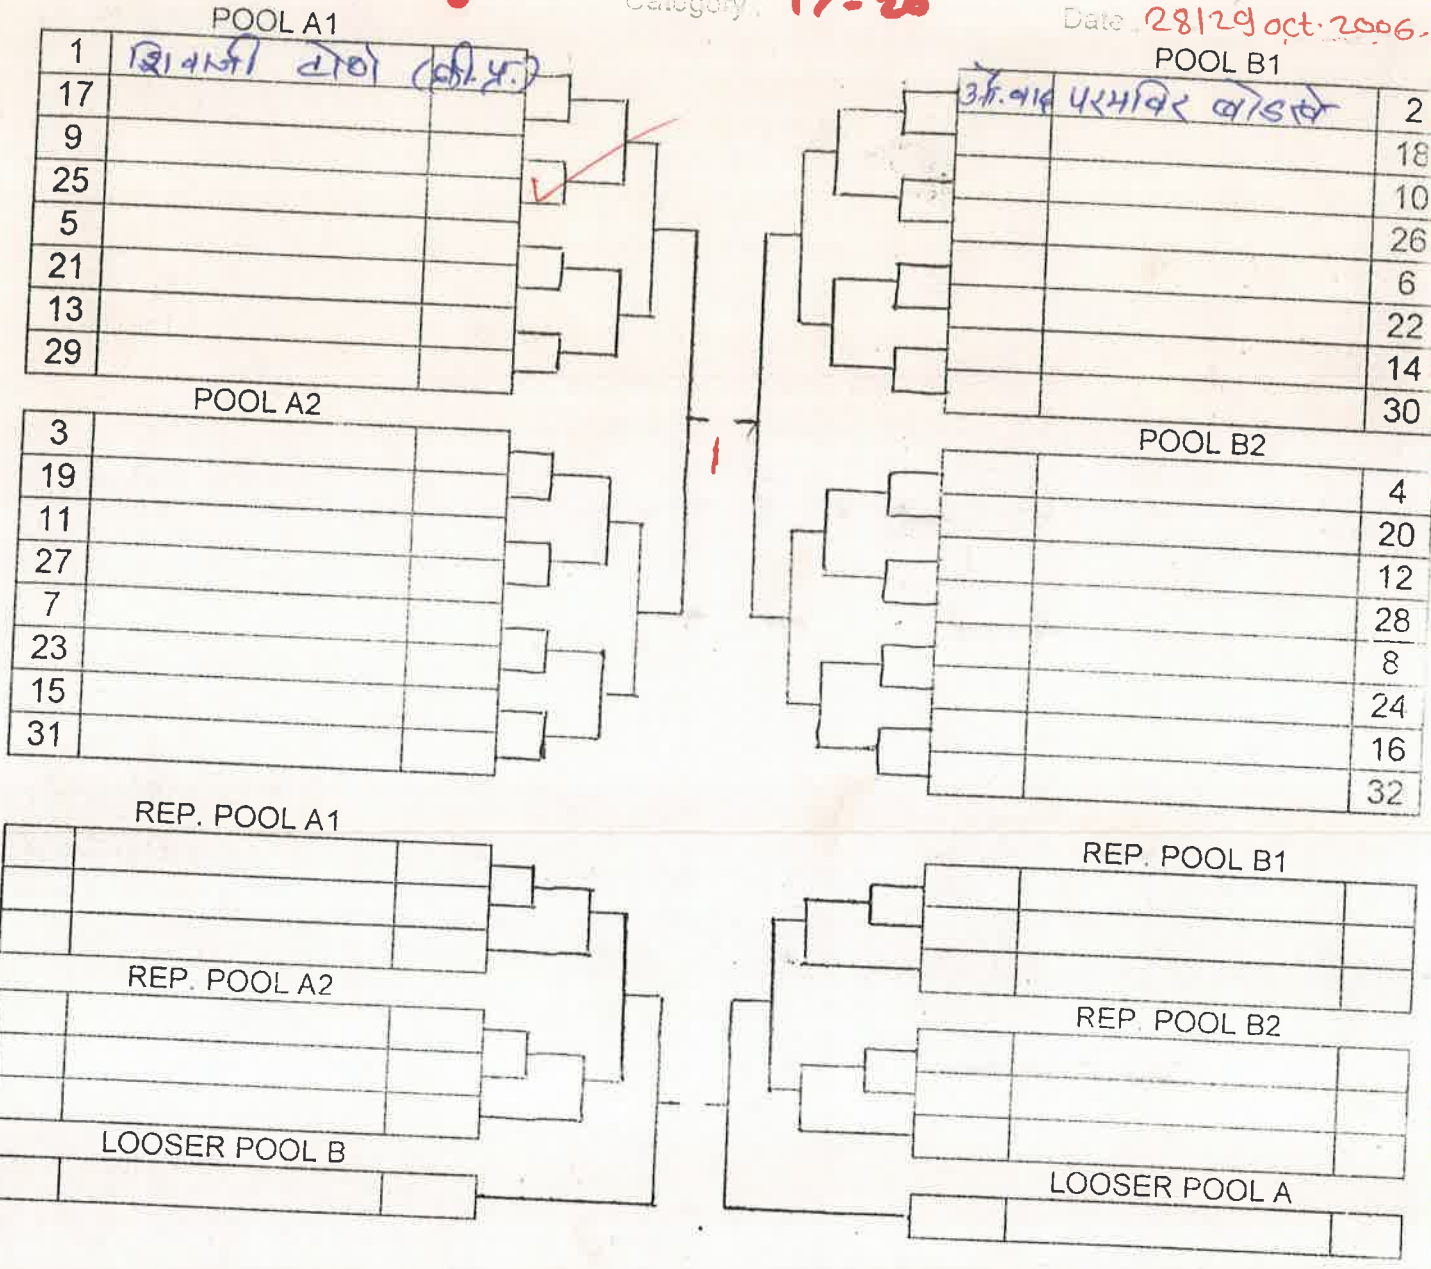 Category : 17-20
Date : 28/29 oct. 2006.
POOL A1
1 शिवाजी (क्री.प्र.)
17
9
25
5
21
13
29
POOL A2
3
19
11
27
7
23
15
31
POOL B1
औ.बाद परमविर बोडखे 2
18
10
26
6
22
14
30
POOL B2
4
20
12
28
8
24
16
32
1
REP. POOL A1
REP. POOL A2
LOOSER POOL B
REP. POOL B1
REP. POOL B2
LOOSER POOL A